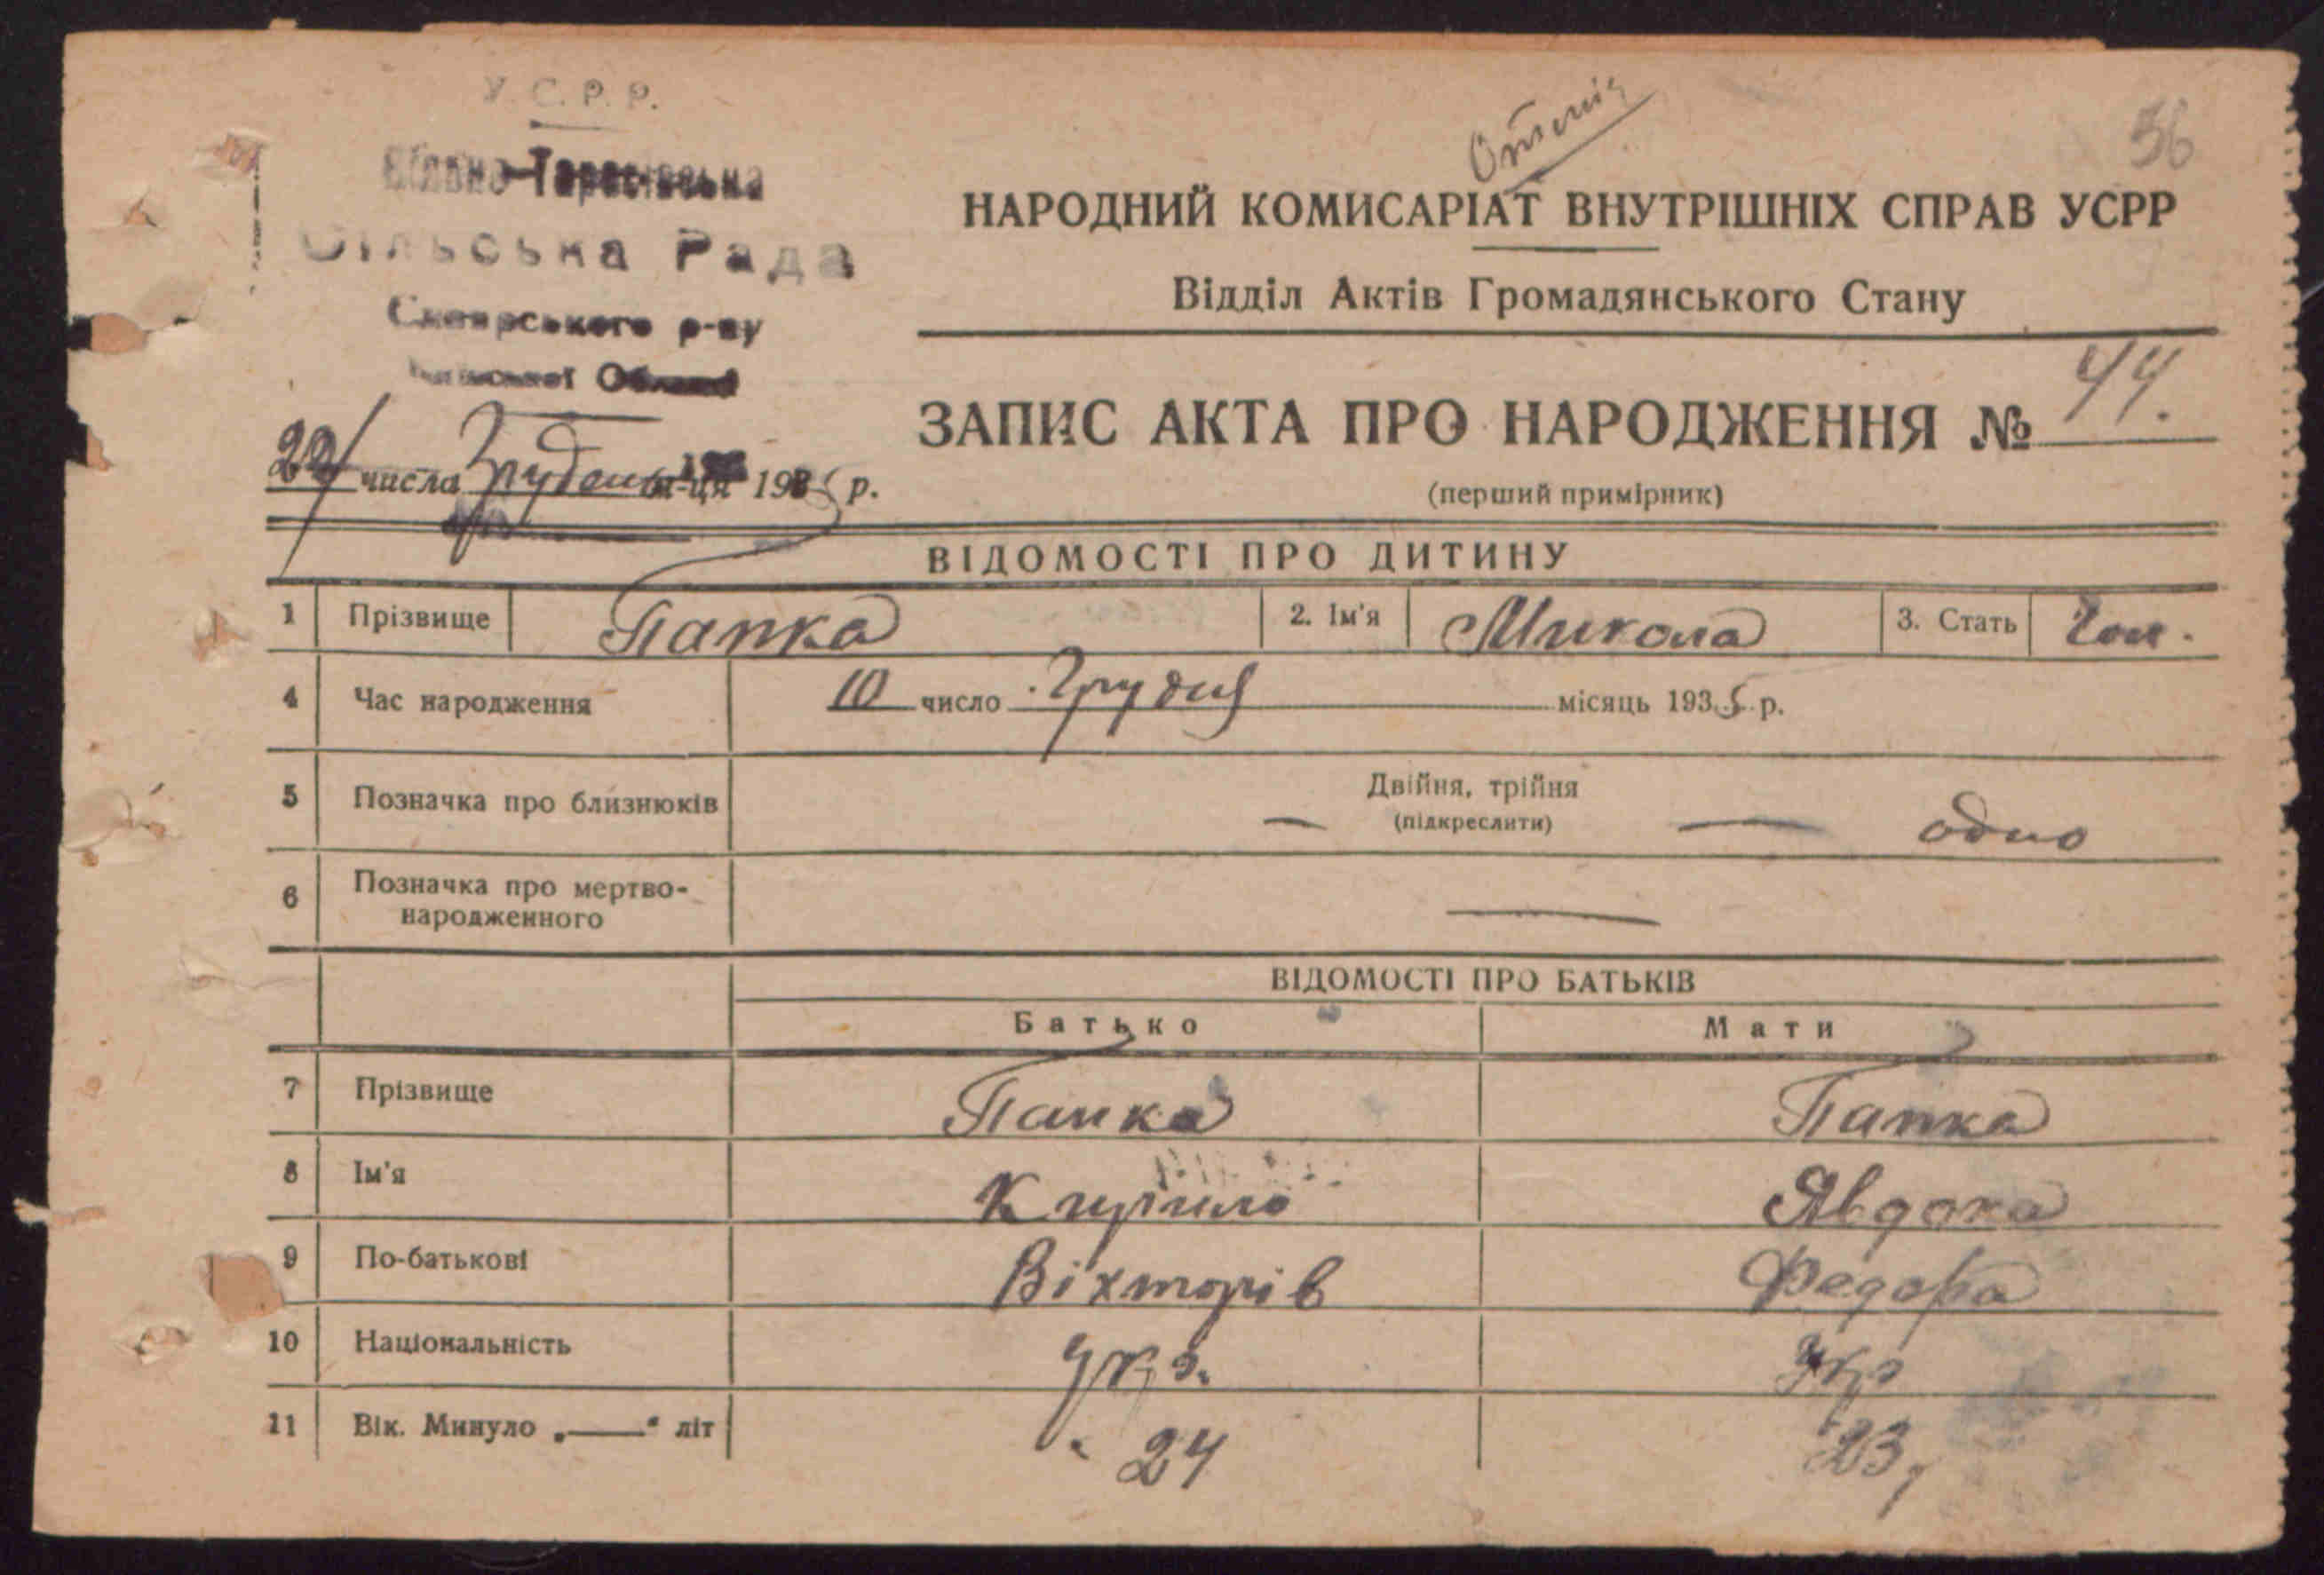 У.С.Р.Р.
Сільська Рада
р-ну
56
НАРОДНИЙ КОМИСАРІАТ ВНУТРІШНІХ СПРАВ УСРР
Відділ Актів Громадянського Стану
ЗАПИС АКТА ПРО НАРОДЖЕННЯ № 44.
22 числа Грудень м-ця 1935 р.
(перший примірник)
ВІДОМОСТІ ПРО ДИТИНУ
1 Прізвище Папка 2. Ім'я Микола 3. Стать Чол.
4 Час народження 10 число Грудня місяць 1935 р.
5 Позначка про близнюків — Двійня, трійня — одно
(підкреслити)
6 Позначка про мертво-
народженного —
ВІДОМОСТІ ПРО БАТЬКІВ
Батько Мати
7 Прізвище Папка Папка
8 Ім'я Кирило Явдоха
9 По-батькові Віхторів Федора
10 Національність Укр. Укр
11 Вік. Минуло „—“ літ 24 23